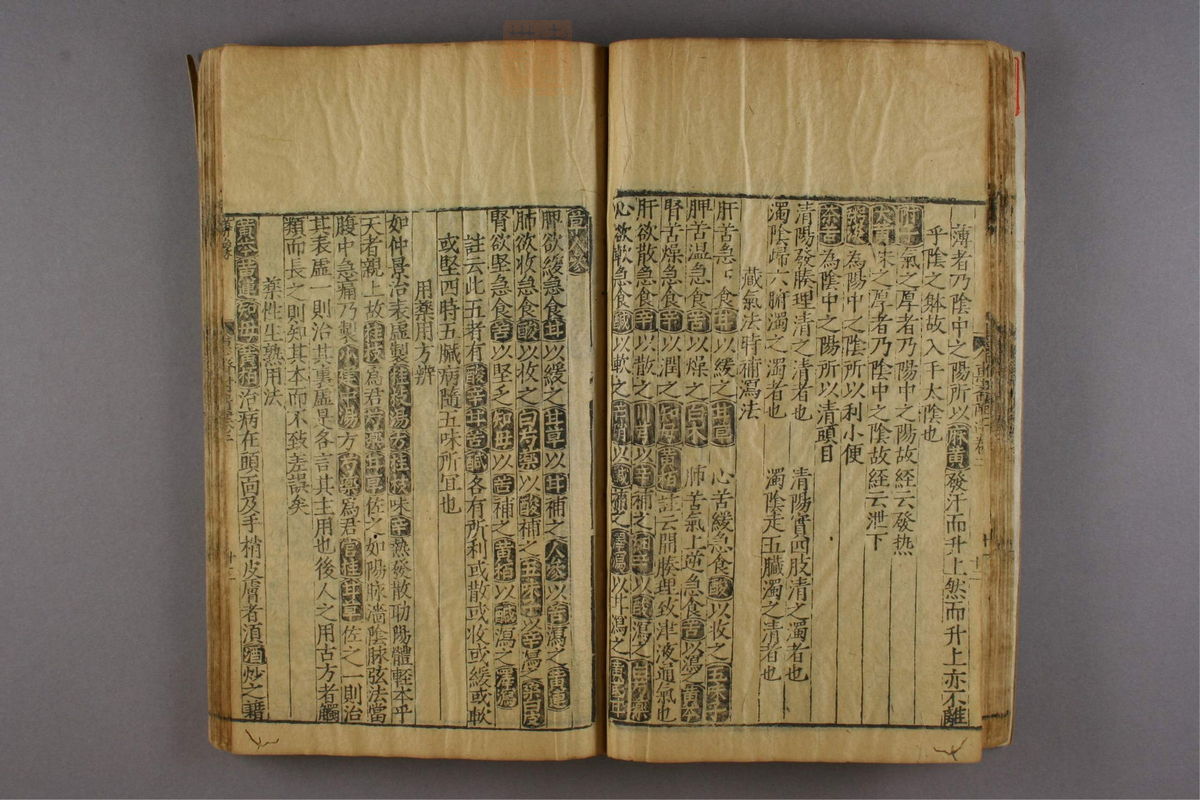 薄者乃陰中之陽所以麻黄發汗而升上然而升上亦不離
乎陰之躰故入手太陰也
附子氣之厚者乃陽中之陽故経云發热
大黄味之厚者乃陰中之陰故経云泄下
為陽中之陰所以利小便
茶苦為陰中之陽所以清頭目
清陽發腠理清之清者也 清陽實四肢清之濁者也
濁陰歸六腑濁之濁者也 濁陰走五臓濁之清者也
藏氣法時補瀉法
肝苦急急食甘以緩之甘草 心苦緩急食酸以收之五味子
脾苦湿急食苦以燥之白术 肺苦氣上逆急食苦以瀉黄芩
腎苦燥急食辛以潤之知母黄柏註云開腠理致津液通氣也
肝欲散急食辛以散之川芎以辛補之細辛以酸瀉之白芍藥
心欲軟急食鹹以軟之芒硝以鹹補之澤瀉以甘瀉之黄芪甘
草人參
脾欲緩急食甘以緩之甘草以甘補之人參以苦瀉之黄連
肺欲收急食酸以收之白芍藥以酸補之五味子以辛瀉之桑白皮
腎欲坚急食苦以坚之知母以苦補之黄柏以鹹瀉之澤瀉
註云此五者有酸辛甘苦鹹各有所利或散或收或緩或軟
或坚四時五臓病隨五味所宜也
用藥用方辨
如仲景治表虚製桂枝湯方桂枝味辛热發散助陽體軽本乎
天者親上故桂枝爲君芍藥甘草佐之如陽脉濇陰脉弦法當
腹中急痛乃製小建中湯方芍藥爲君官桂甘草佐之一則治
其表虚一則治其裏虚是各言其主用也後人之用古方者觸
類而長之則知其本而不致差誤矣
藥性生熟用法
黄芩黄連知母黄柏治病在頭面及手梢皮膚者須酒炒之藉